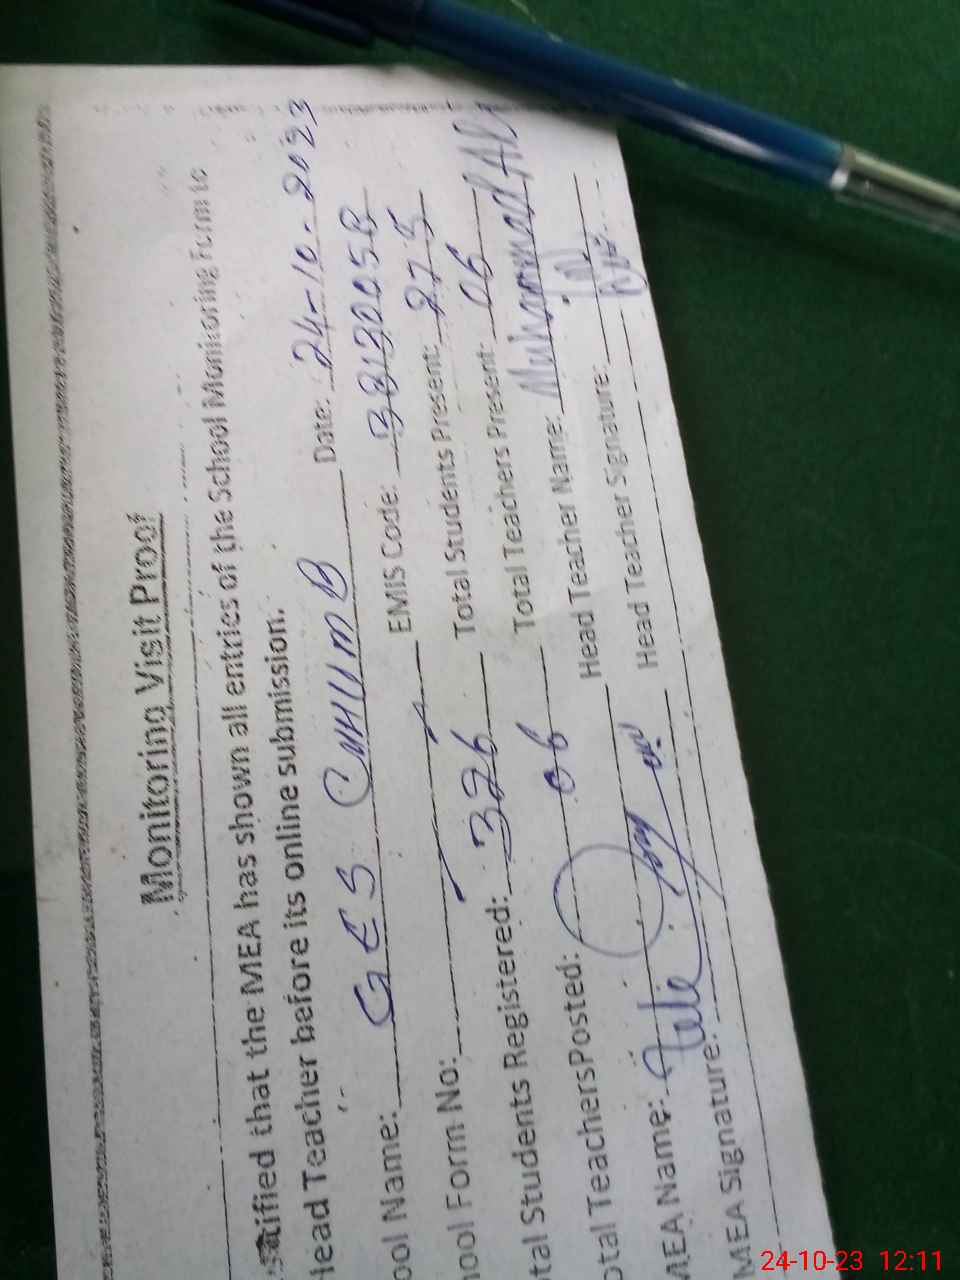 Monitoring Visit Proof
tified that the MEA has shown all entries of the School Monitoring Form to
Head Teacher before its online submission.
ool Name: GES Date: 24-10-2023
hool Form No: EMIS Code: 38130058
tal Students Registered: 326 Total Students Present: 275
otal TeachersPosted: 06 Total Teachers Present: 06
MEA Name: Head Teacher Name: Muhammad Ali
MEA Signature: Head Teacher Signature:
24-10-23 12:11